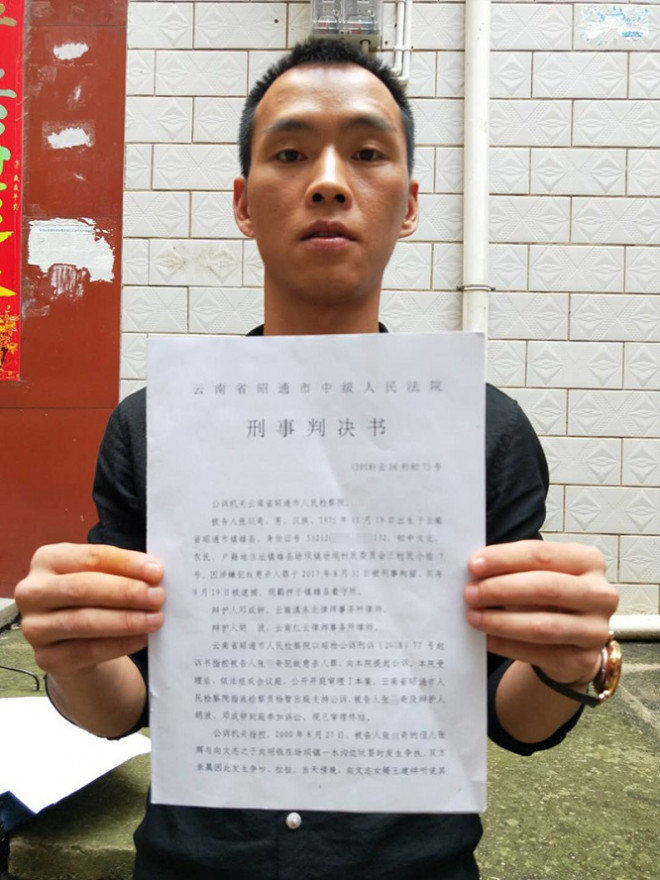 云南省昭通市中级人民法院
刑事判决书
(2018)云06刑初73号
公诉机关云南省昭通市人民检察院。
被告人张 奇,男,汉族,1971年11月19日出生于云南
省昭通市镇雄县,身份证号53212 132,初中文化,
农民,户籍地住址镇雄县 坝镇 坝村民委员会三村民小组7
号。因涉嫌犯故意杀人罪于2017年8月11日被刑事拘留,同年
9月19日被逮捕。现羁押于镇雄县看守所。
辩护人邓成钟,云南滇东北律师事务所律师。
辩护人胡 波,云南红云律师事务所律师。
云南省昭通市人民检察院以昭检公诉刑诉(2018)77号起
诉书指控被告人张 奇犯故意杀人罪,向本院提起公诉。本院受
理后,依法组成合议庭,公开开庭审理了本案。云南省昭通市人
民检察院指派检察员杨智出庭支持公诉,被告人张 奇及辩护人
胡波、邓成钟到庭参加诉讼。现已审理终结。
公诉机关指控,2000年8月27日,被告人张 奇的侄儿张
辉与向文志之子向明钱在 坝镇一水沟边玩耍时发生争执,双方
亲属因此发生争吵、拉扯。当天傍晚,向文志女婿王建 听说其